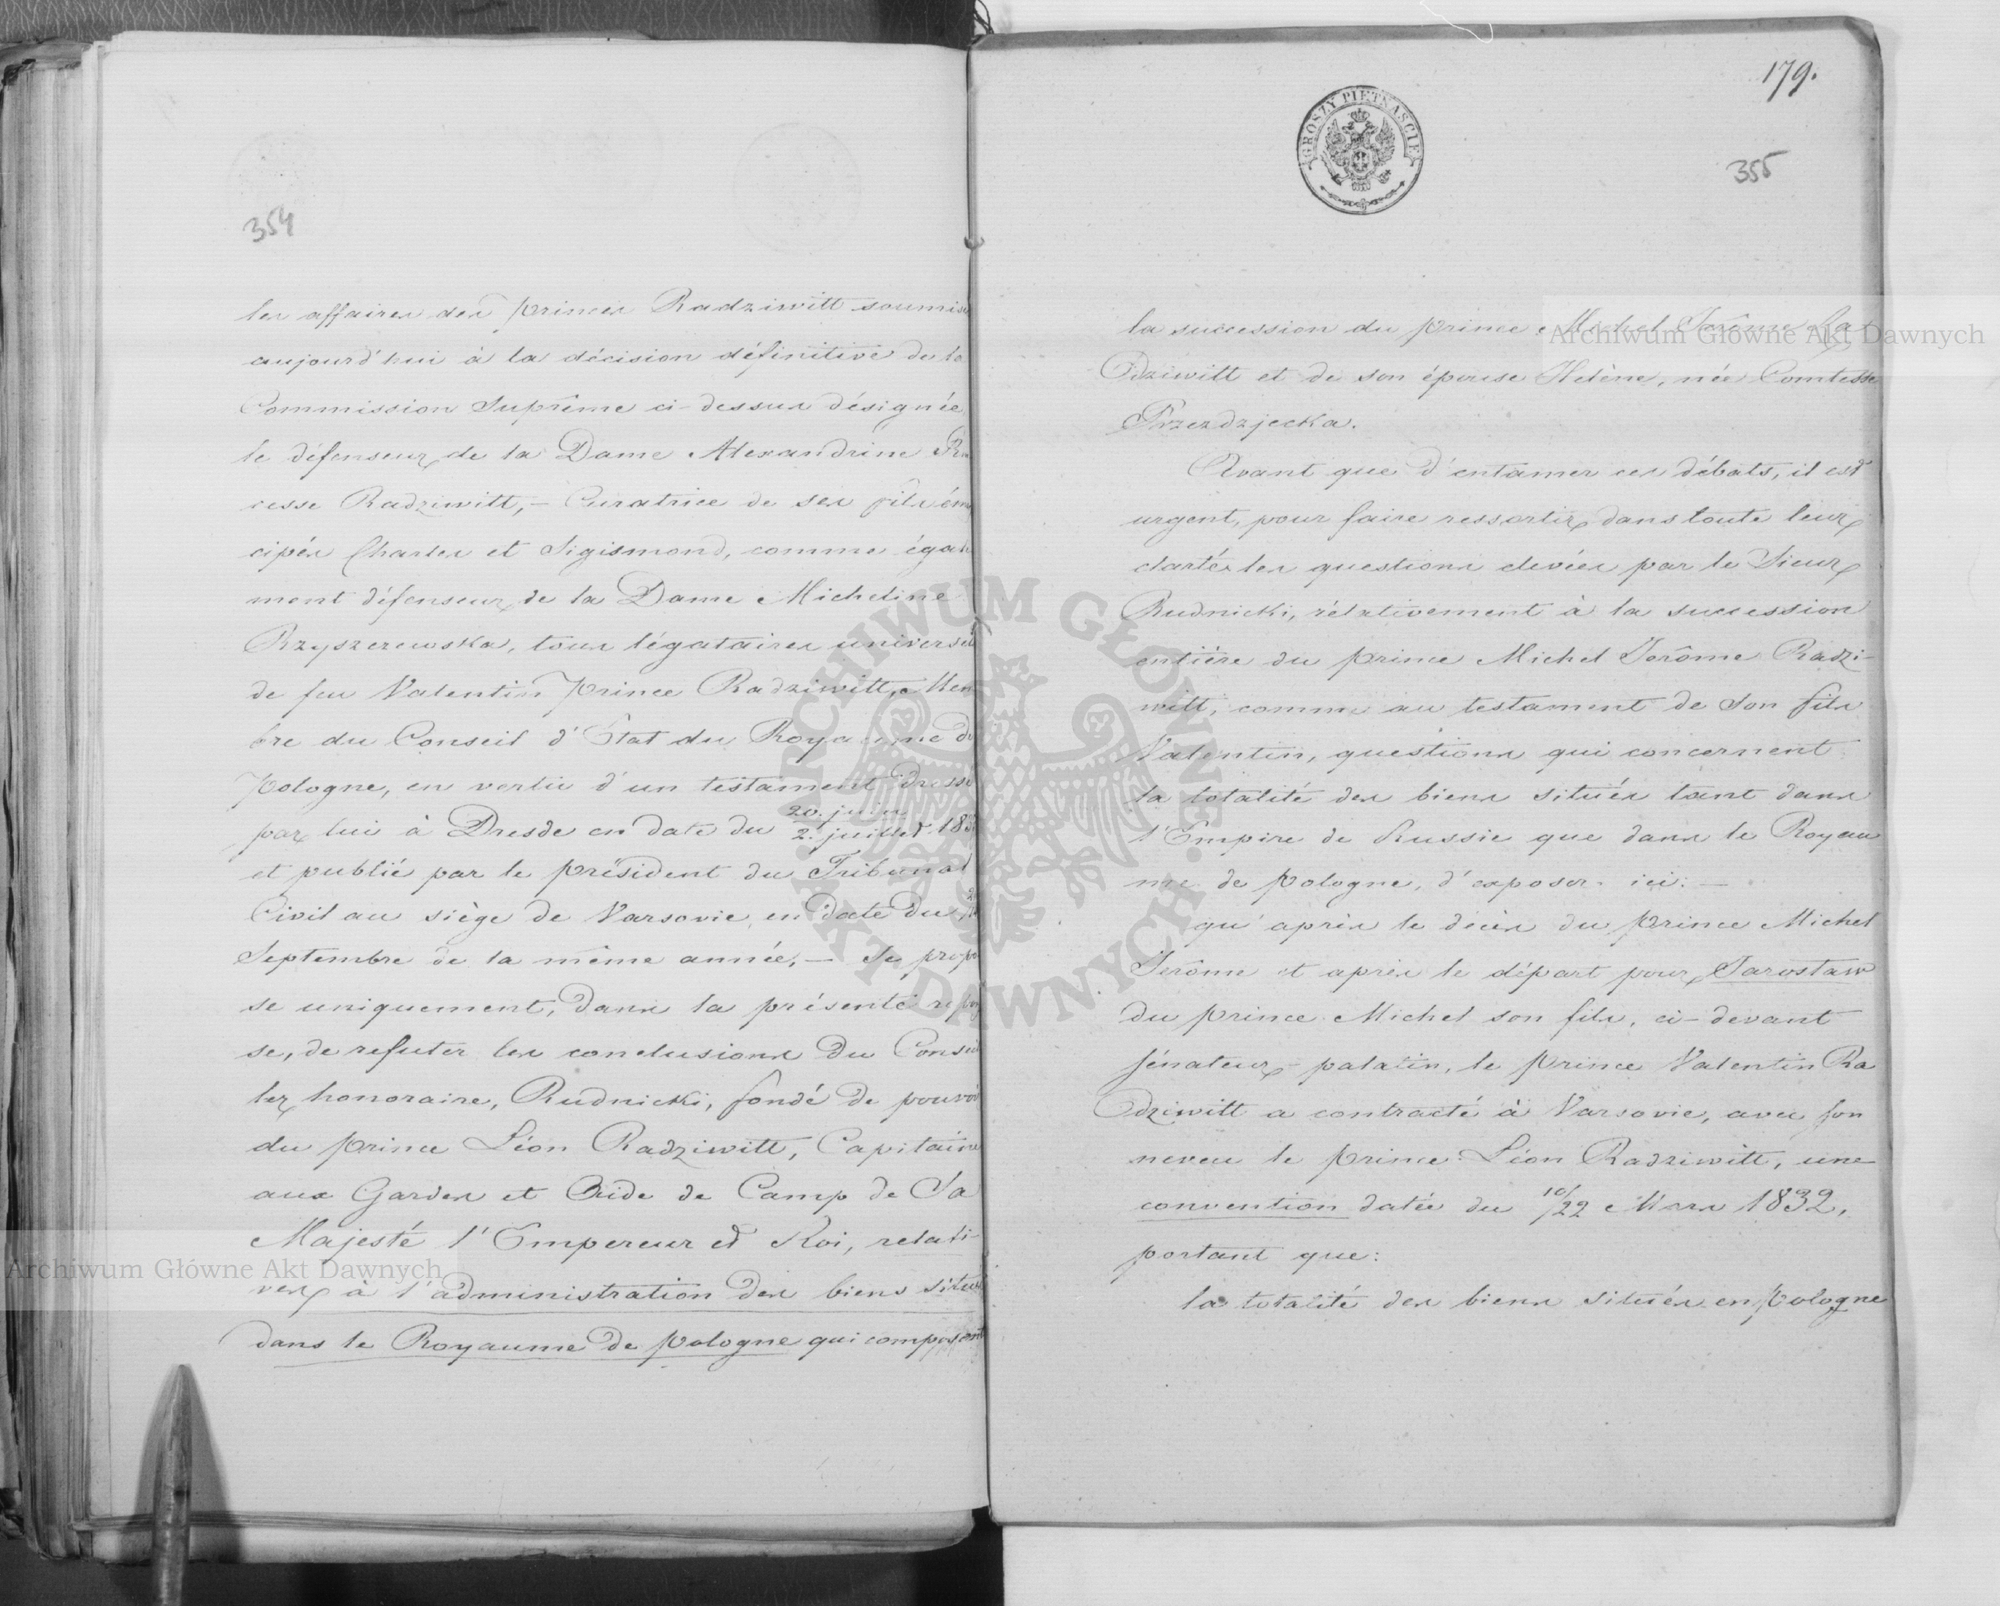 354
les affaires des princes Radziwill soumis
aujourd'hui à la décision définitive de la
Commission Suprême ci-dessus désignée
le défenseur de la Dame Alexandrine
cesse Radziwill, – Curatrice de ses fils éman
cipés Charles et Sigismond, comme égale
ment défenseur de la Dame Micheline
Rzyszczewska, tous légataires universels
de feu Valentin Prince Radziwill, Mem
bre du Conseil d'État du Royaume de
Pologne, en vertu d'un testament dressé
par lui à Dresde en date du 20. juin / 2. juillet
et publié par le président du Tribunal
Civil au siège de Varsovie, en date du
Septembre de la même année, – Se propo
se uniquement, dans la présente répon
se, de refuter les conclusions du Conseil
ler honoraire, Rudnicki, fondé de pouvoir
du prince Léon Radziwill, Capitaine
aux Gardes et Aide de Camp de Sa
Majesté l'Empereur et Roi, relati-
ves à l'administration des biens situés
dans le Royaume de pologne qui composent
179.
GROSZY PIETNAŚCIE
355
la succession du prince Michel Jerôme Ra
dziwill et de son épouse Helène, née Comtesse
Przezdzjecka.
Avant que d'entamer ces débats, il est
urgent, pour faire ressortir dans toute leur
clarté les questions elevées par le Sieur
Rudnicki, rélativement à la succession
entière du prince Michel Jerôme Radzi-
will, comme au testament de Son fils
Valentin, questions qui concernent
la totalité des biens situés tant dans
l'Empire de Russie que dans le Royau
me de pologne, d'exposer ici: –
qu'après le décès du prince Michel
Jerôme et après le départ pour Jarostaw
du prince Michel son fils, ci-devant
Sénateur-palatin, le prince Valentin Ra
dziwill a contracté à Varsovie, avec son
neveu le prince Léon Radziwill, une
convention datée du 10/22 Mars 1832,
portant que:
la totalité des biens situés en pologne
Archiwum Główne Akt Dawnych
Archiwum Główne Akt Dawnych
ARCHIWUM GŁÓWNE AKT DAWNYCH